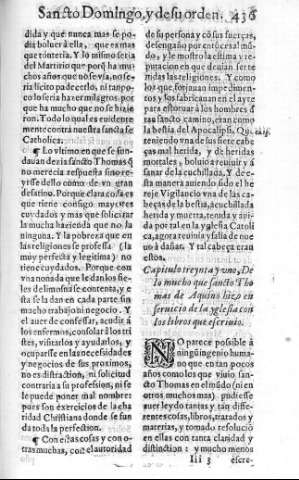 Sancto Domingo, y de su orden. 436
dida y que nunca mas se po-
dia boluer à ella, que eramas
que tinieria. Y lo mismo seria
del Martirio que por q̃ ha mu
chos años que no se vía, no se-
ria licito padecerlo, ni tampo-
co lo seria hazer milagros. por
que ha mucho que no se hizie-
ron. Todo lo qual es euidente
mente contra nuestra sancta fe
Catholica.
¶ Lo vltimo en que se fun-
dauan dezia sancto Thomas q̃
no merecia respuesta sino re-
yrse dello como de vn gran
desatino. Porque clara cosa es
que tiene consigo mayores
cuydados y mas que solicitar
la mucha hazienda que no la
ninguna. Y la pobreza que en
las religiones se professa (la
muy perfecta y legitima) no
tiene cuydados. Porque con
vna honda que le dan los fie-
les de limosna se contenta, y e
sta se la dan en cada parte sin
mucho trabajo ni negocio. Y
el auer de confessar, acudir à
los enfermos, consolar à lo tri
stes, visitarlos y ayudarlos, y
ocuparsse en las necessidades
y negocios de sus proximos,
no es distraction, ni solicitud
contraria a su profesion, ni se
le puede poner mal nombre
pues son exercicios de la cha-
ridad Christiana donde se fun
da toda la perfection.
¶ Con estas cosas y con o-
tras muchas, con el autoridad
de su persona y cõ sus fuerças,
desengaño por entõces al mũ-
do, y le mostro la estima y re-
putacion en que deuian ser te
nidas las religiones. Y como
los que forjauan impedimen-
tos y sus fabricauan en el ayre
para estoruar à los hombres ẽ
tan sancto camino, eran como
la bestia del Apocalipsi, Que
teniendo vna de sus siete cabe
ças mal herida, y de heridas
mortales, boluio à reuiuir y à
sanar de la cuchillada. Y de e-
sta manera auiendo sido el he
reje Vigilancio vna de las ca
beças de la bestia, acuchillada
herida y muerta, tenida y a pi-
ada por tal en la yglesia Catoli
ca, agora reuiuia y salia de nue
uo à dañar. Y tal cabeça eran
estos.
Capitulo treynta y uno, De
lo mucho que sancto Tho
mas de Aquino hizo en
seruicio de la yglesia con
los libros que escriuio.
NO parece possible à
ningũ ingenio huma
no que en tan pocos
años como los que viuio san-
cto Thomas en el mũdo (ni en
otros muchos mas) pudiesse
auer leydo tantas y tan diffe-
rentes cosas, libros, tratados y
materias, y tomado resoluciõ
en ellas con tanta claridad y
distinction: y mucho menos
Iii 3 escre-